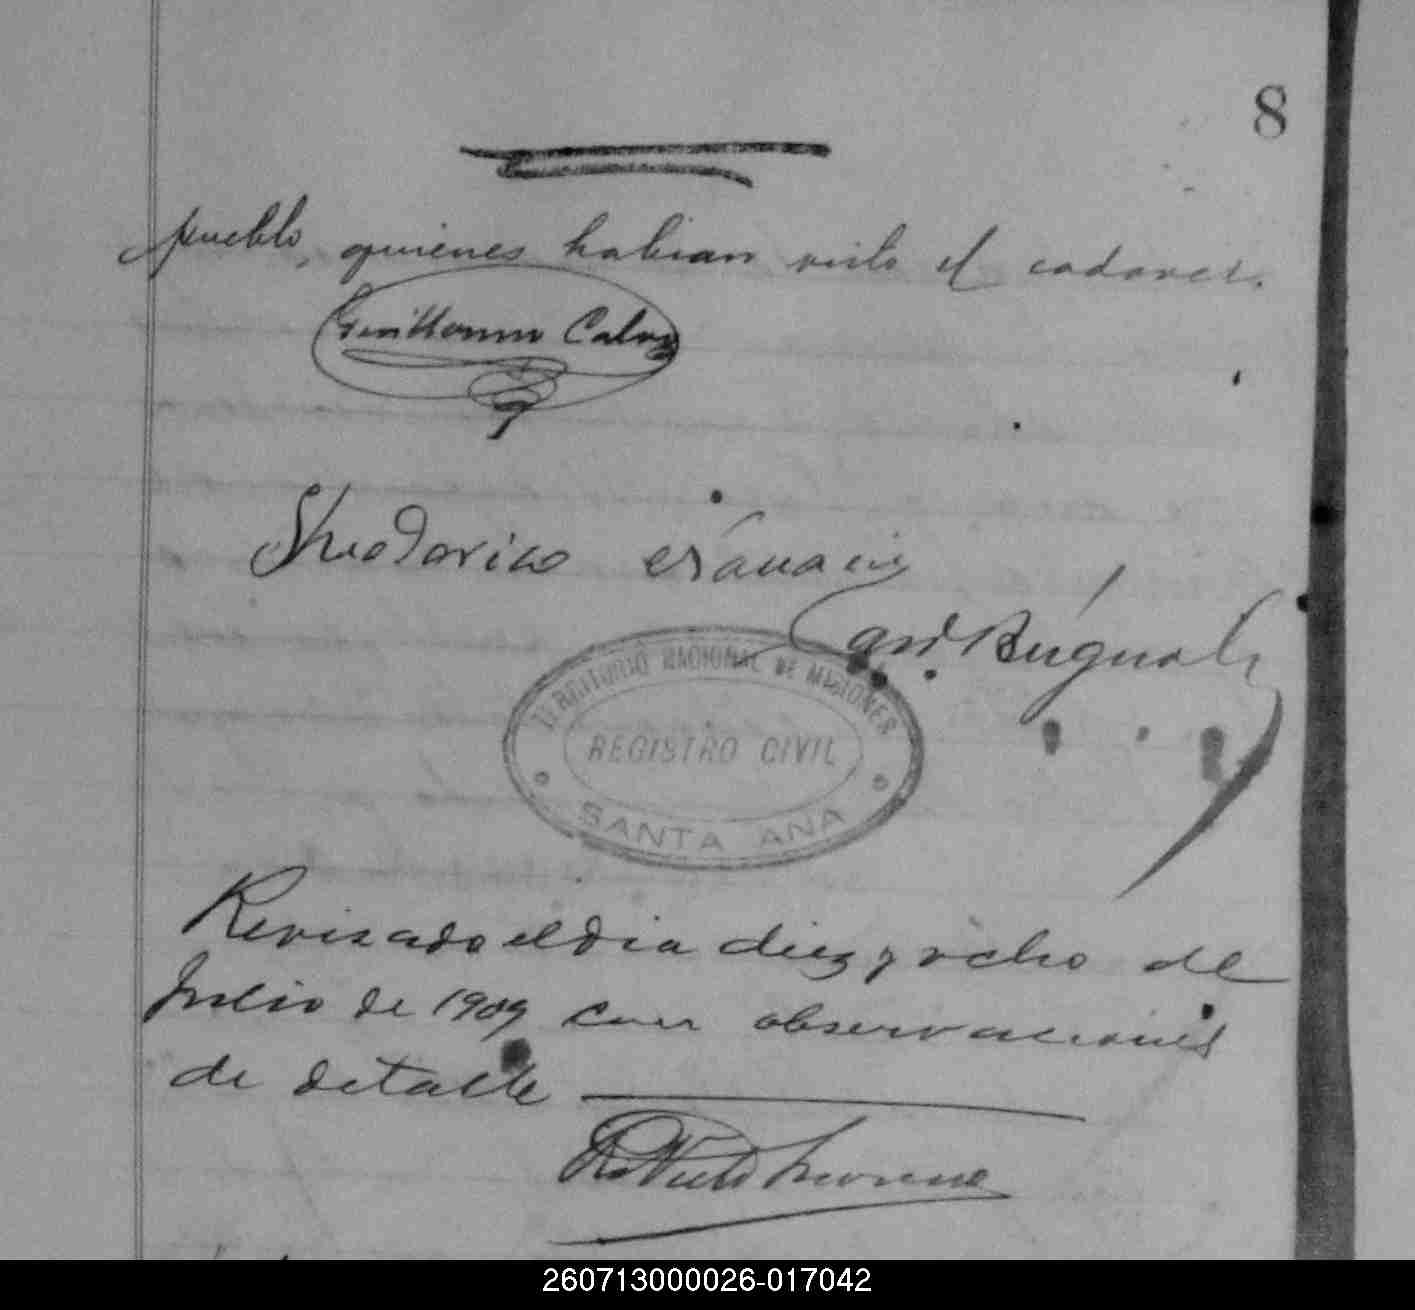 8
pueblo, quienes habian visto el cadaver.
Guillermo Calvo
Theodorico
TERRITORIO NACIONAL DE MISIONES
REGISTRO CIVIL
SANTA ANA
Revisado el dia diez y ocho de
Julio de 1909 con observaciones
de detalle
260713000026-017042